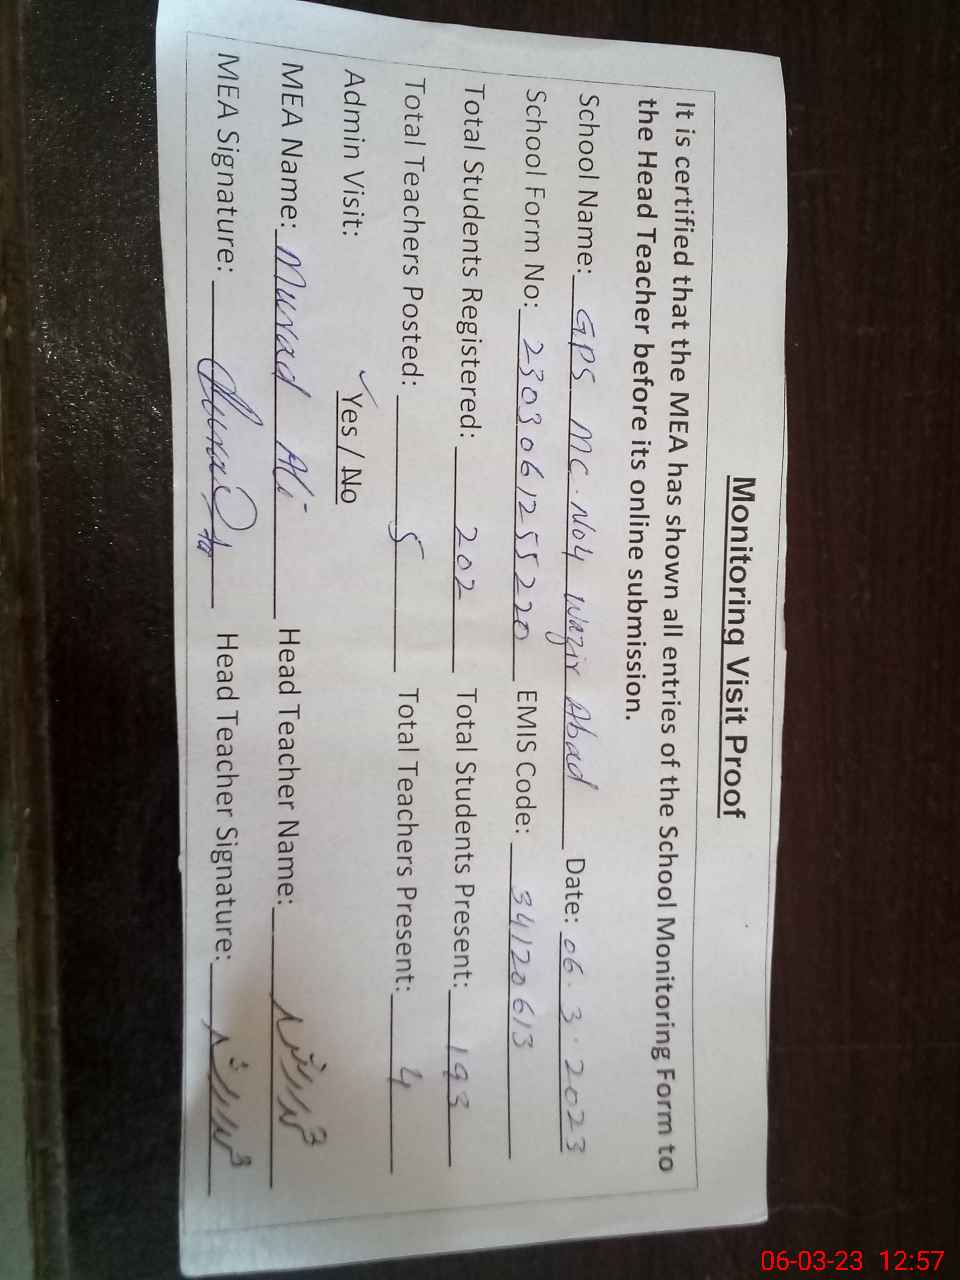 Monitoring Visit Proof
It is certified that the MEA has shown all entries of the School Monitoring Form to
the Head Teacher before its online submission.
School Name: GPS MC. No4 Wazir Abad Date: 06.3.2023
School Form No: 2303061255220 EMIS Code: 34120613
Total Students Registered: 202 Total Students Present: 193
Total Teachers Posted: 5 Total Teachers Present: 4
Admin Visit: Yes / No
MEA Name: Murad Ali Head Teacher Name:
MEA Signature: Head Teacher Signature:
06-03-23 12:57